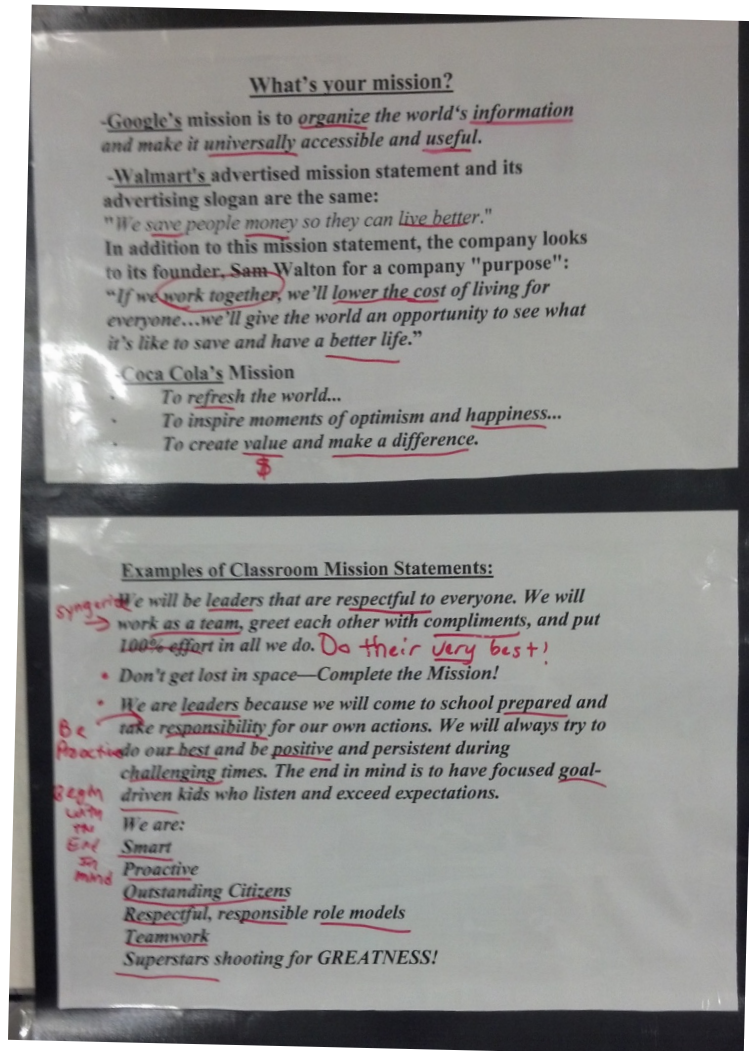 What's your mission?
-Google's mission is to organize the world's information
and make it universally accessible and useful.
-Walmart's advertised mission statement and its
advertising slogan are the same:
"We save people money so they can live better."
In addition to this mission statement, the company looks
to its founder, Sam Walton for a company "purpose":
“If we work together, we'll lower the cost of living for
everyone…we'll give the world an opportunity to see what
it's like to save and have a better life.”
-Coca Cola's Mission
· To refresh the world...
· To inspire moments of optimism and happiness...
· To create value and make a difference.
$
Examples of Classroom Mission Statements:
We will be leaders that are respectful to everyone. We will
work as a team, greet each other with compliments, and put
100% effort in all we do. Do their very best!
• Don't get lost in space—Complete the Mission!
• We are leaders because we will come to school prepared and
Be take responsibility for our own actions. We will always try to
Proactive do our best and be positive and persistent during
challenging times. The end in mind is to have focused goal-
Begin driven kids who listen and exceed expectations.
with
the We are:
End Smart
In
mind Proactive
Outstanding Citizens
Respectful, responsible role models
Teamwork
Superstars shooting for GREATNESS!